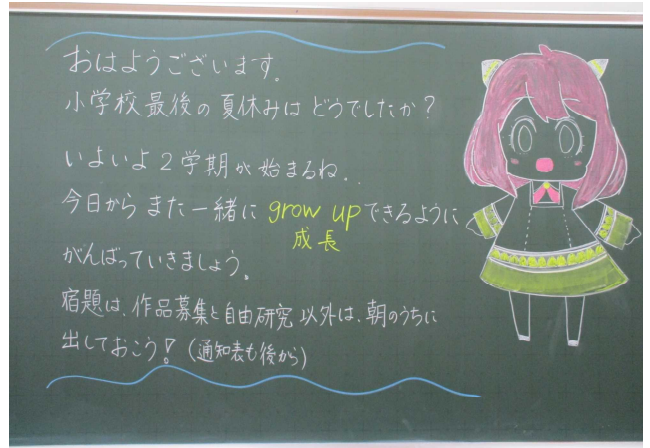 おはようございます。
小学校最後の夏休みは どうでしたか?
いよいよ2学期が始まるね..
今日から また 一緒に grow up できるように
成長
がんばっていきましょう。
宿題は、作品募集と自由研究 以外は、朝のうちに
出しておこう! (通知表も後から)